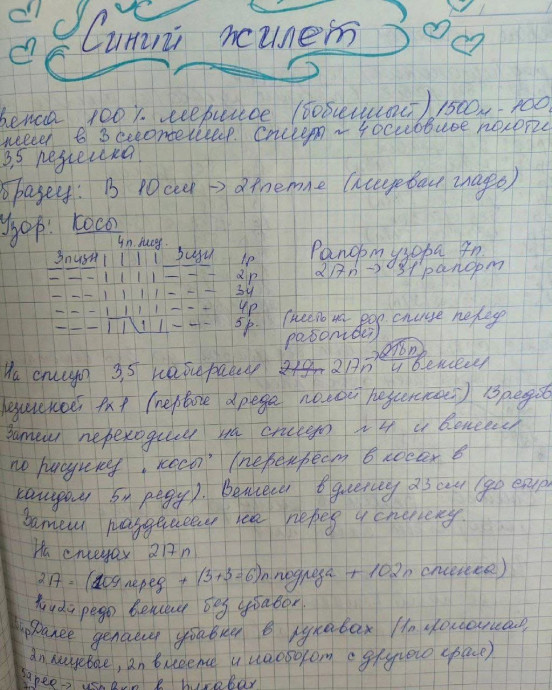 Синий жилет
100% меринос (бобинный) 1500м - 100
в 3 сложения. Спицы ~ 4 основное полотн
3,5 резинка.
бразец: В 10 см → 21 петля (лицевая гладь)
Узор: Косы
4п. лиц.
3п изн 3 изн 1р
2р
3й
4р
5р.
Рапорт узора 7п.
217п → 31 рапорт
(нить на доп спице перед
работой)
216п
На спицы 3,5 набираем 219п 217п и вяжем
резинкой 1х1 (первые 2 ряда полой резинкой) 13 рядов
Затем переходим на спицы ~4 и вяжем
по рисунку "косы" (перекрест в косах в
каждом 5м ряду). Вяжем в длину 23 см (до
Затем разделяем на перед и спинку
На спицах 217п
217 = (109п перед + (3+3=6)п подреза + 102п спинка)
ряды вяжем без убавок.
Далее делаем убавки в рукавах (1п кромочная,
2п лицевые, 2п вместе и наоборот с другого края)
ряд → убавка в рукавах